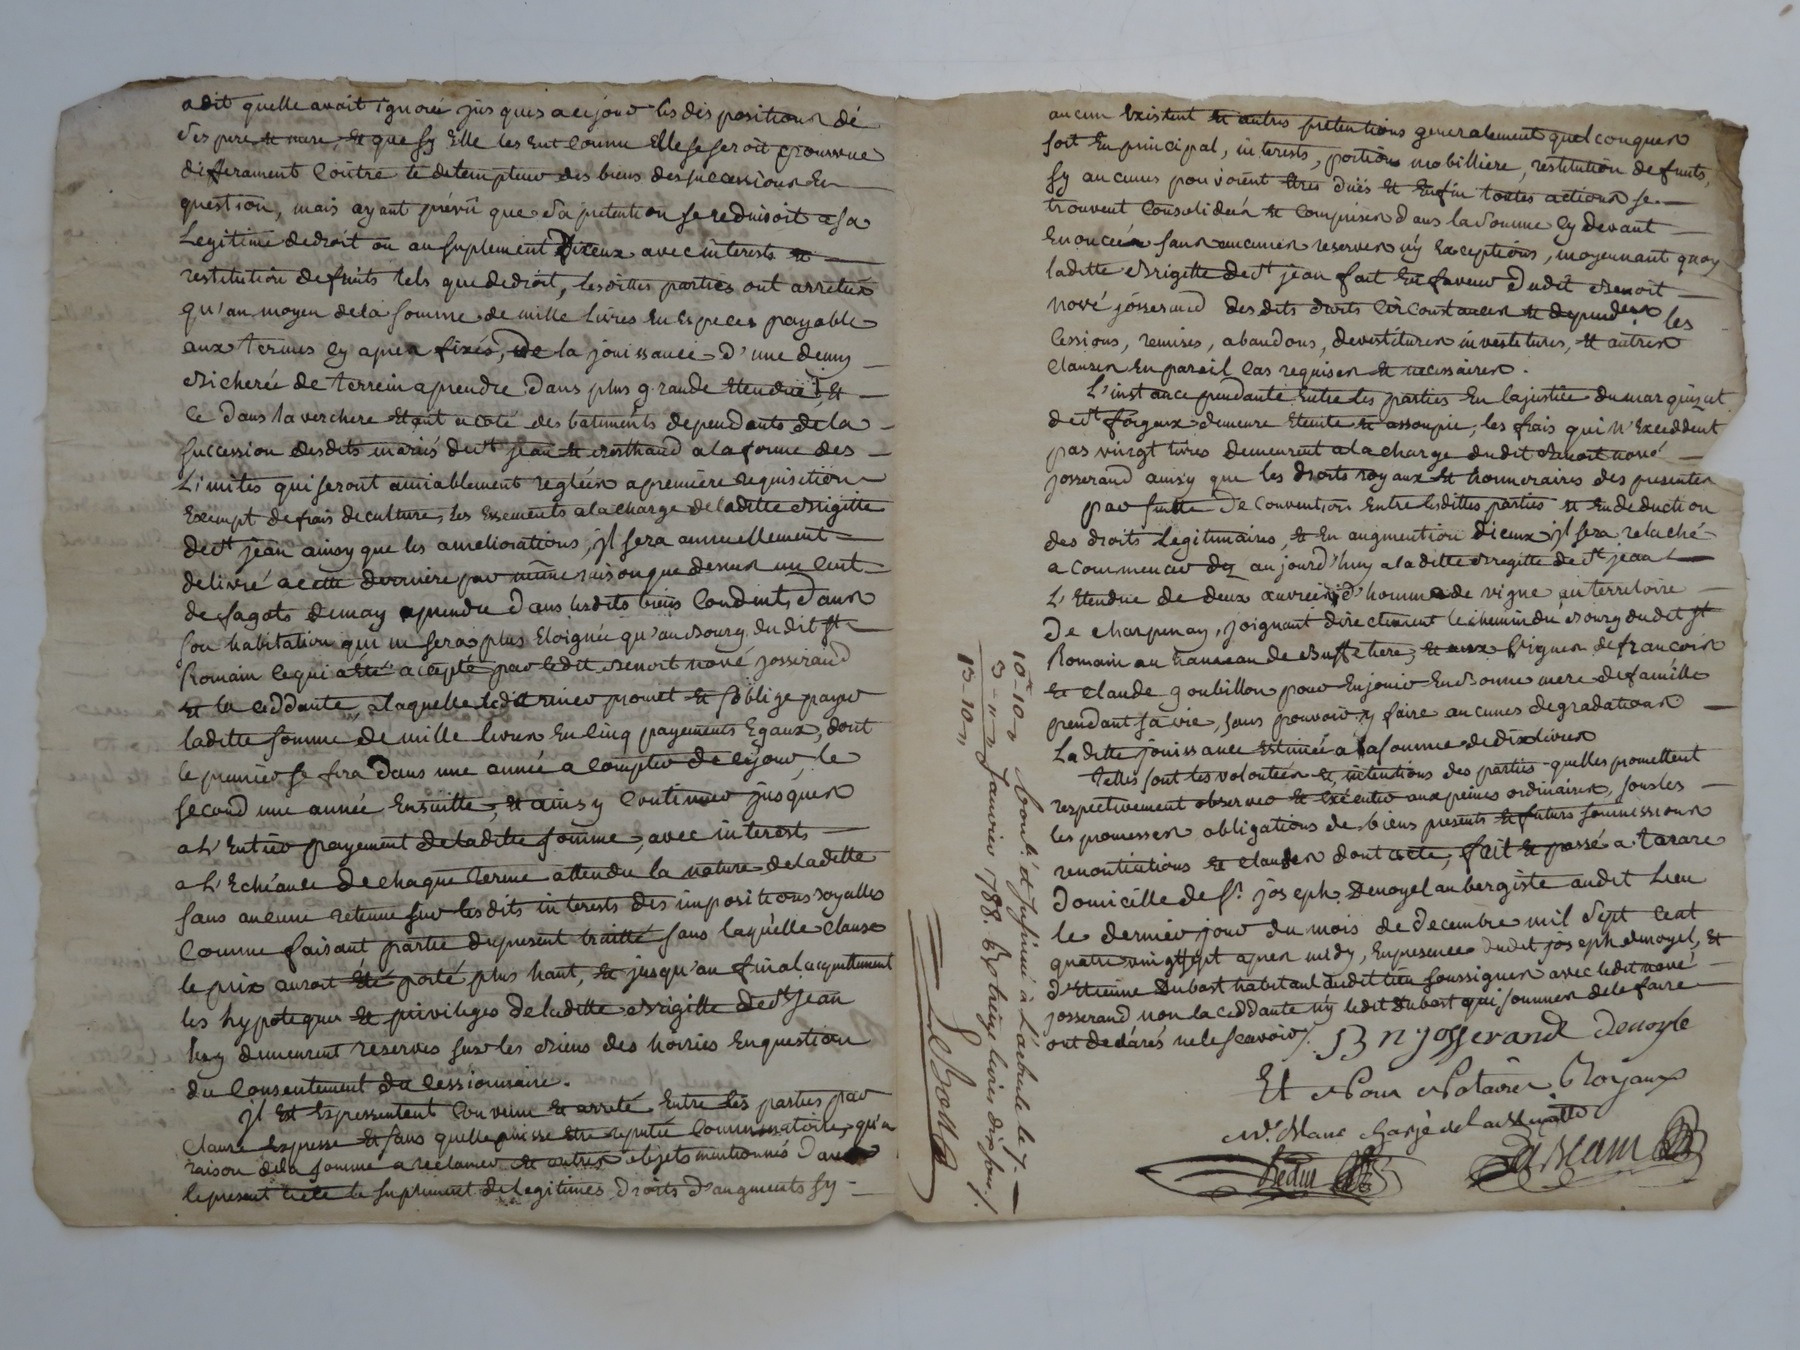 a dit quelle avait ignoré jusques a ce jour les dispositions de
ses pere et mere et que sy Elle les Eut Connu Elle se seroit pourvue
differament Contre le detempteur des biens des successions En
question, mais ayant prévû que sa pretention se reduisoit a sa
Legitime de droit ou au suplement d'iceux avec interests et
restitution de fruits tels que de droit, lesdittes parties ont arretés
qu'au moyen de la somme de mille livres En Especes payable
aux termes Cy apres fixés, de la jouissance d'une demy
Bicherée de terrein a prendre dans plus grande Etendue, Et
Ce dans la verchere Etant a coté des batiments dependants de la
succession desdits mariés de st jean et Berthaud a la forme des
Limites qui seront amiablement reglées a premiere requisition
Exempt de frais de culture, les Essements a la charge de laditte Brigitte
de st jean ainsy que les ameliorations, jl sera annuellement
delivré a cette derniere par même raison que dessus un Cent
de fagots de may a prendre dans lesdits biens Conduits dans
son habitation qui ne sera plus Eloignée qu'au Bourg dudit st
Romain Ce qui a Eté accepté par ledit Benoit nové josserand
Et la Ceddante, a laquelle ledit promet Et s'oblige payer
laditte somme de mille livres En Cinq payements Egaux, dont
le premier se fera dans une année a Compter de Ce jour, le
second une année Ensuitte, et ainsy Continuer jusques
a L'Entier payement de laditte somme, avec interests
a L'Echéance de chaque terme attendu la nature de laditte
sans aucune retenue sur lesdits interests des impositions royalles
Comme faisant partie du present traitté sans laquelle clause
le prix auroit Eté porté plus haut, Et jusqu'au final acquittement
les hypoteques Et privileges de laditte Brigitte de st jean
luy demeurent reservés sur les Biens des hoiries En question
du Consentement du Cessionnaire.
Jl Est Expressement Convenu Et arreté Entre les parties par
Clause Expresse Et sans quelle puisse Etre reputée Comminatoire, qu'a
raison de la somme a reclamer et autres objets mentionnés dans
le present acte le supliment de legitimes droits d'augments sy
10lt 10s
3 - "
13 - 10 "
Conté et Insinué à L'arbresle le 7
Janvier 1788. Rs treize livres dix sous ./.
aucun Existent Et autres pretentions generalement quelconques
soit En principal, interests, portions mobilliere, restitution de fruits,
sy aucunes pouvoient Etres duës Et Enfin toutes actions se
trouvent Consolidées Et Comprises dans la somme Cy devant
Enoncée sans aucunes reserves n'y Exceptions, moyennant quoy
laditte Brigitte de st jean fait En faveur dudit Benoit
nové josserand desdits droits Circonstances Et dependces les
Cessions, remises, abandons, devestitures investitures, Et autres
Clauses En pareil Cas requises Et necessaires.
L'instance pendante Entre les parties En la justice du marquizat
de st forgeux demeure Eteinte Et assoupie, les frais qui n'Exceddent
pas vingt livres demeurent a la charge dudit Benoit nové
josserand ainsy que les droits royaux Et honneraires des presentes
par suitte de Convention Entre lesdittes parties Et En deduction
des droits Legitimaires, Et En augmention d'iceux jl sera relaché
a Commencer dez aujourd'huy a laditte Brigitte de st jean
L'Etendue de deux œuvrées d'homme de vigne au territoire
De charpenay, joignant directement le chemin du Bourg dudit st
Romain au hameau de Buffetiere, Et aux Vignes de francois
Et Claude goubillon pour En jouir En Bonne mere de famille
pendant sa vie, sans pouvoir y faire aucunes degradations
Laditte jouissance Estimée a la somme de dix livres
telles sont les volontées Et intentions des parties quelles promettent
respectivement observer Et Exécuter aux peines ordinaires, sous les
les promesses obligations de biens presents Et futurs soumissions
renontiations Et clauses dont acte, fait Et passé a tarare
domicille de sr joseph Denoyel aubergiste audit Lieu
le dernier jour du mois de decembre mil sept Cent
quatre vingt sept apres midy, En presence dudit joseph denoyel, Et
d'Etienne Dubost habitant audit lieu soussignes avec ledit nové
josserand non la Ceddante n'y ledit Dubost qui sommes de le faire
ont declarés ne le scavoir ./. B n josserand denoyle
Et Pour Notaires Royaux
Mr. Blanc chargé de la Minutte